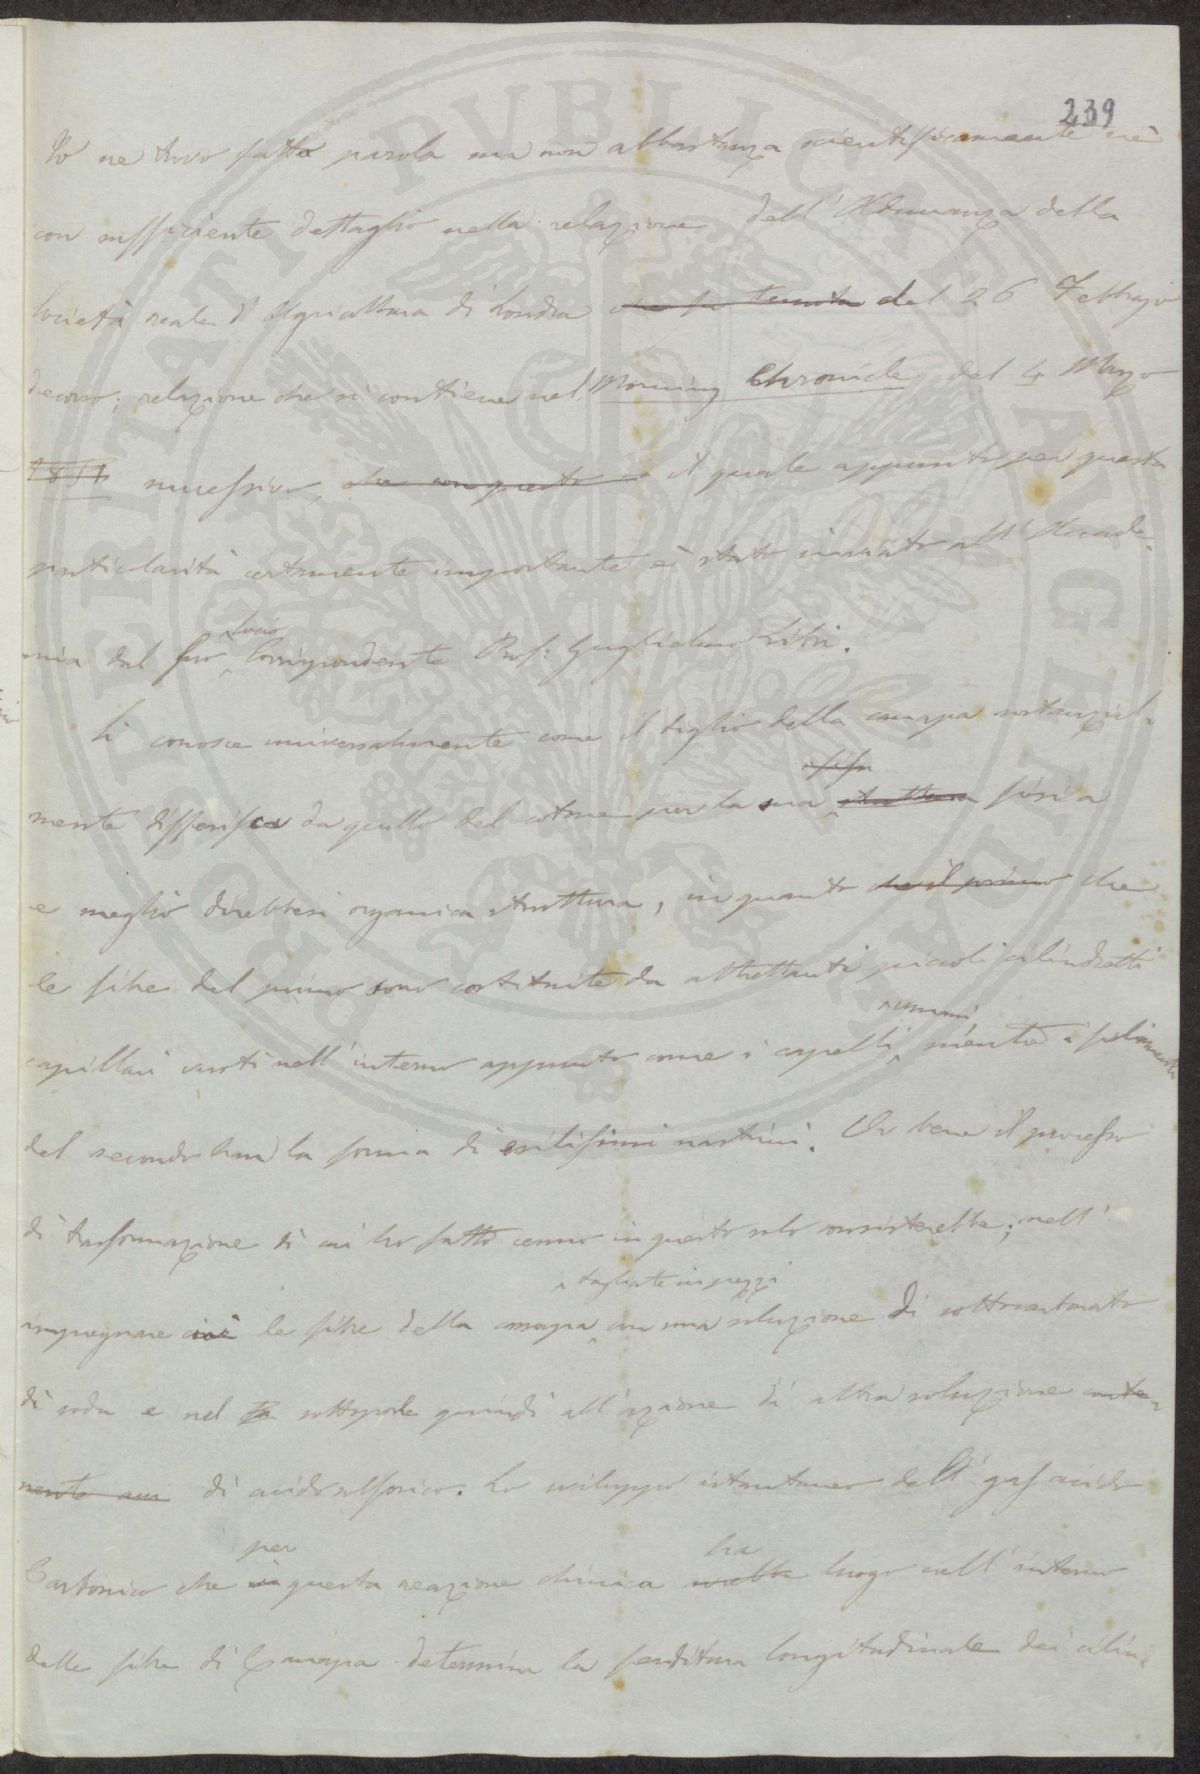 239
Io ne trovo fatta parola ma non abbastanza scientificamente nè
con sufficiente dettaglio nella relazione dell'Adunanza della
Società reale d'Agricoltura di Londra che fu tenuta del 26 Febbrajo
decorso; relazione che si contiene nel Morning Chronicle del 4 Marzo
1851 successivo, che con questo il quale appunto per questa
particolarità certamente importante è stato inviato all'Accade-
mia dal suo Socio Corrispondente Prof: Guglielmo Libri.
Si conosce universalmente come il tiglio della canapa sostanzial-
mente differisca da quello del cotone per la sua fisi struttura fisica
e meglio direbbesi organica struttura, in quanto che il primo che
le fibre del primo sono costituite da altrettanti piccoli cilindretti
capillari vuoti nell'interno appunto come i capelli umani, mentre i filamenti
del secondo han la forma di esilissimi nastrini. Or bene il processo
di trasformazione di cui ho fatto cenno in questo solo consisterebbe; nell'
impregnare cioè le fibre della canapa tagliate in pezzi con una soluzione di sottocarbonato
di soda e nel sottoporle quindi all'azione di altra soluzione conte-
nente acu di acido solforico. Lo sviluppo istantaneo dell'gas acido
Carbonico che in per questa reazione chimica avrebbe ha luogo nell'interno
delle fibre di Canapa determina la fenditura longitudinale dei cilin-